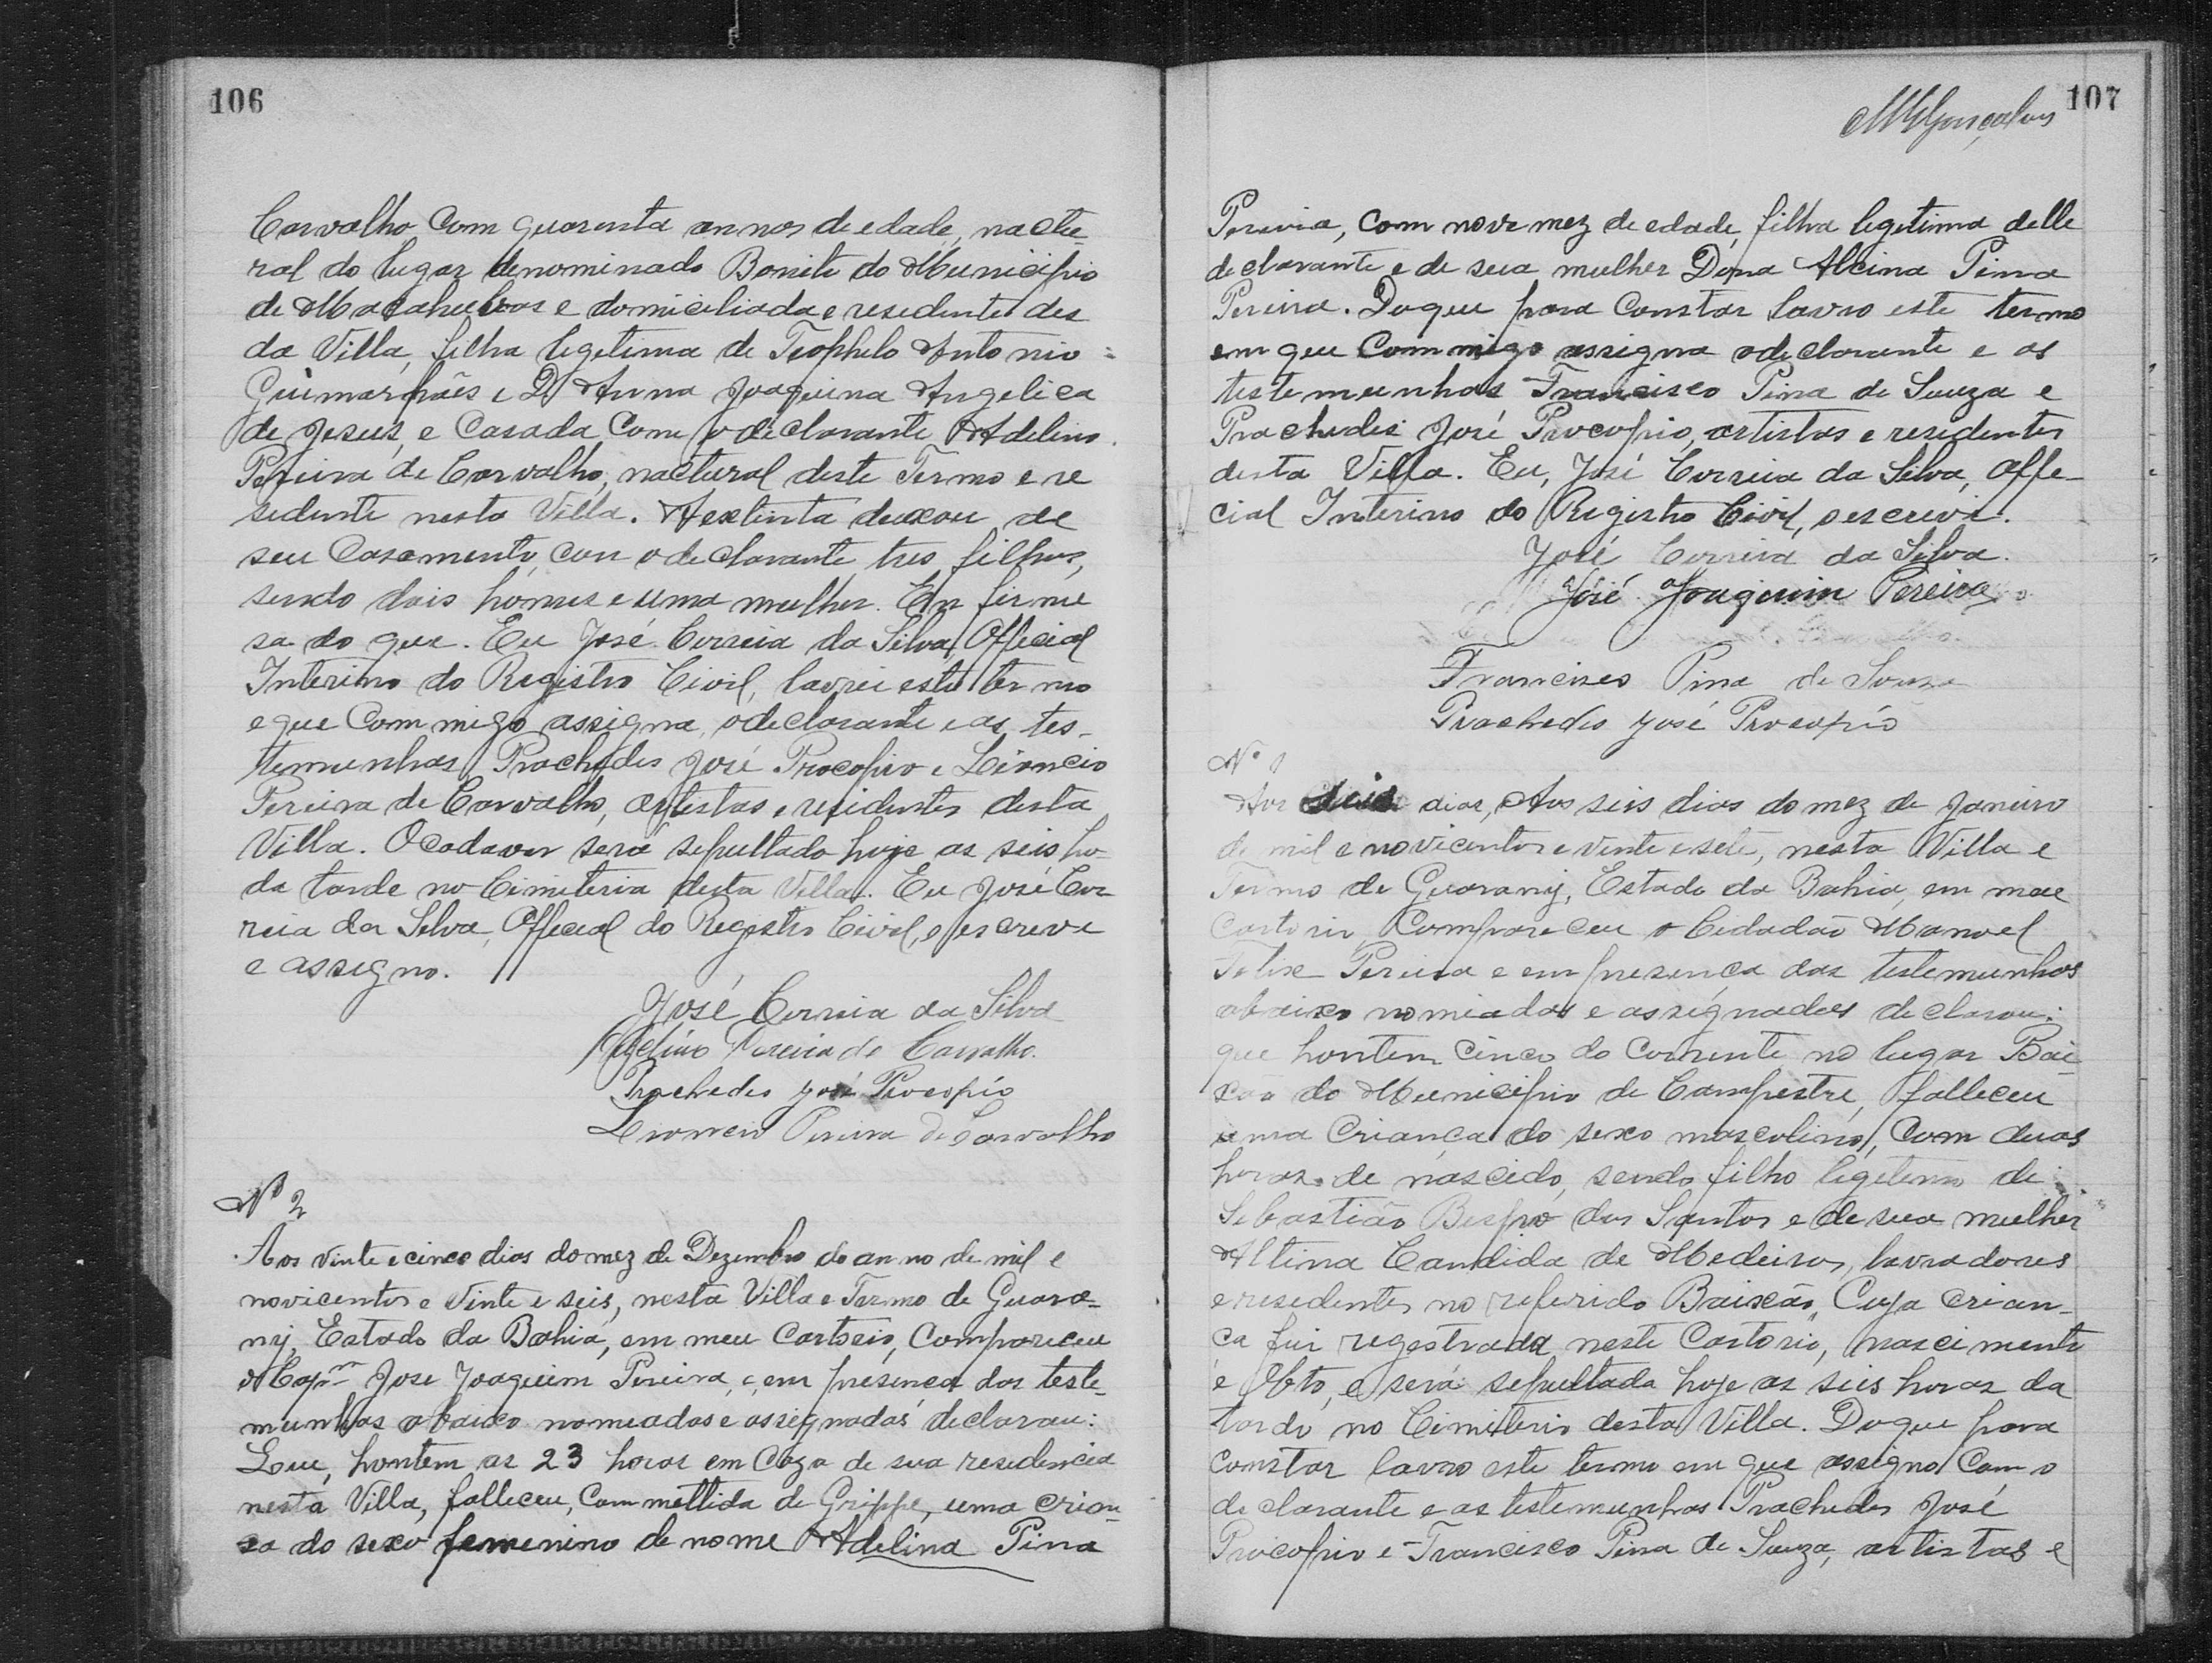 106
Carvalho, com quarenta annos de edade, nactu-
ral do lugar denominado Bonito do Municipio
de Macahubas e domiciliada e residente des
da Villa, filha legitima de Teophelo Antonio
Guimarhães e D. Anna Joaquina Angelica
de Jesus, e Casada com o declarante Adelino
Pereira de Carvalho, nactural deste Termo e re
sidente nesta Villa. A extinta deixou de
seu Casamento, con o declarante tres filhos,
sendo dois homes e uma mulher. Em firme
sa do que. Eu José Correia da Silva, Official
Interino do Registro Civil, lavrei este termo
e que commigo assigna, o declarante e as tes-
temunhas Prachedes José Procopio e Leoncio
Pereira de Carvalho, artistas e residentes desta
Villa. O cadaver será sepultado hoje as seis ho-
da tarde no Cimiteria desta Villa. Eu José Cor
reia da Silva, Official do Registro Civil, o escreve
e assigno.
José Correia da Silva
Adelino Pereira de Carvalho.
Prachedes José Procopio
Leoncio Pereira de Carvalho
Nº 2
Aos vinte e cinco dias do mez de Dezembro do anno de mil e
novicentos e vinte e seis, nesta Villa e Termo de Guara-
ny, Estado da Bahia, em meu Cartorio, Compareceu
o Capm José Joaquim Pereira, e, em presença das teste-
munhas abaixo nomeadas e assignadas declarou:
Que, hontem as 23 horas em Caza de sua residencia
nesta Villa, falleceu, Com mettida de Grippe, uma crian-
sa do sexo femenino de nome Adelina Pina
107
Pereira, com nove mez de edade, filha legitima delle
declarante e de sua mulher Dona Alcina Pinna
Pereira. Do que para Constar lavro este termo
em que Commigo assigna o declarante e as
testemunhas Francisco Pina de Souza e
Prachedes José Procopio, artistas e residentes
desta Villa. Eu, José Correia da Silva, Offe-
cial Interino do Registro Civil, o escrevi.
José Correia da Silva.
José Joaquim Pereira
Francisco Pina de Souza
Prachedes José Procopio
Nº 1
Aos seis dias, Aos seis dias do mez de Janeiro
de mil e novicentos e vinte e sete, nesta Villa e
Termo de Guarany, Estado da Bahia, em meu
Cartorio Compareceu o Cidadão Manoel
Felix Pereira e em presença das testemunhas
abaixo nomiadas e assignadas declarou:
que hontem cinco do corrente no lugar Bai-
xão do Municipio de Campestre, falleceu
uma Criança do sexo mascolino, com duas
horas de nascido, sendo filho legitimo de
Sebastião Bispo dos Santos e de sua mulher
Altina Candida de Medeiros, lavradores
e residentes no referido Baixão, Cuja crian-
ca fui registrada neste Cartorio, nascimento
e Obto, e será sepultada hoje as seis horas da
tarde no Cimiterio desta Villa. Do que para
constar lavro este termo em que assigno Com o
declarante e as testemunhas Prachedes José
Procopio e Francisco Pina de Souza, artistas e